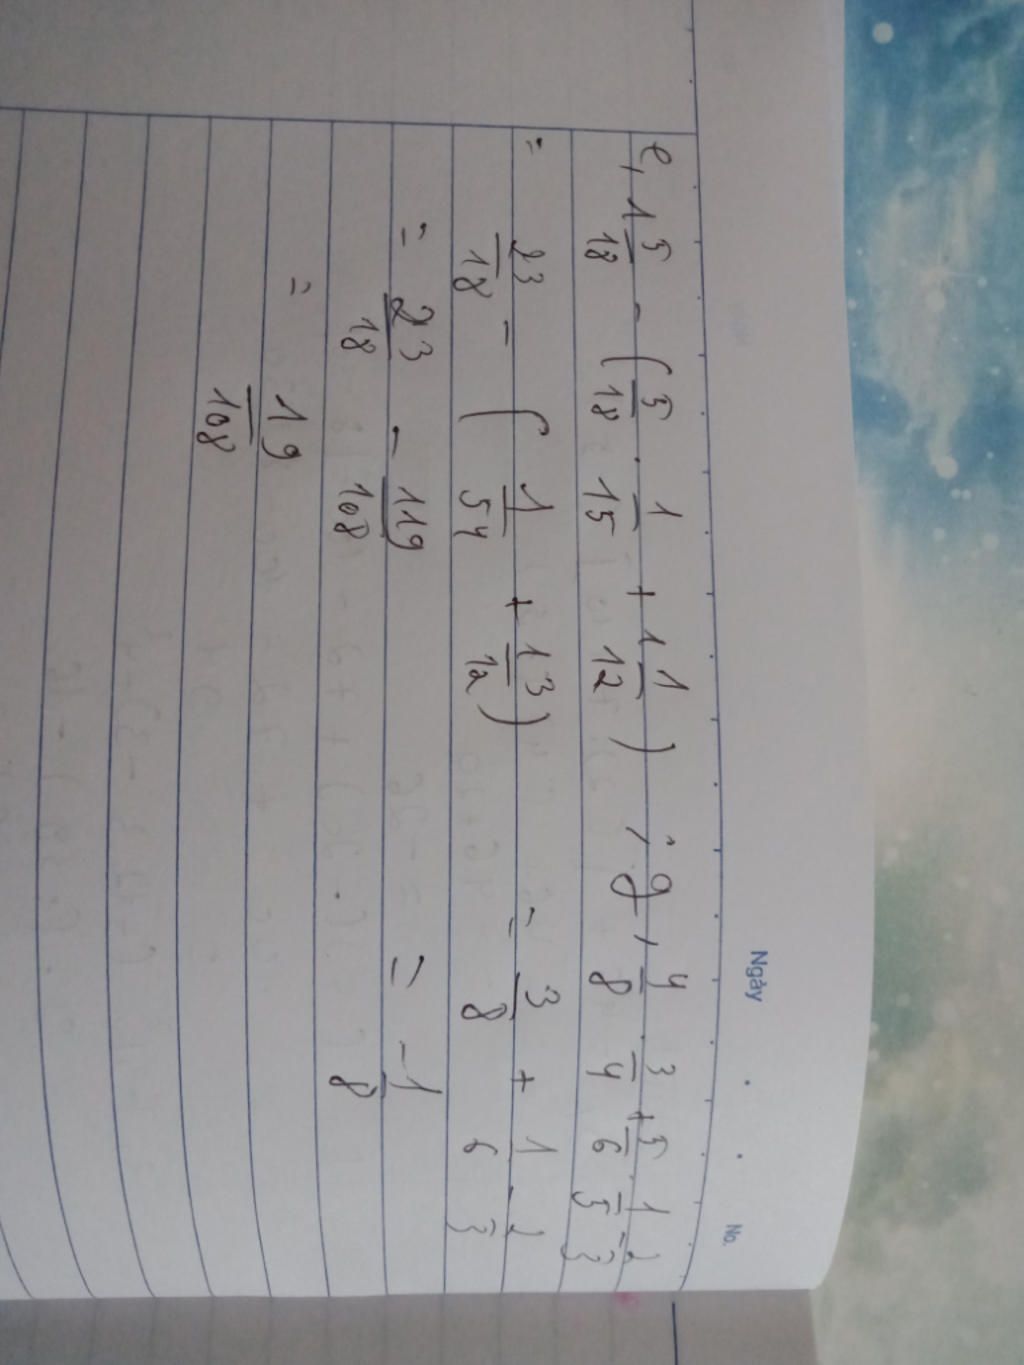 Ngày No.
e, 1 5/18 - ( 5/18 . 1/15 + 1 1/12 ) ; g, 4/8 . 3/4 + 5/6 . 1/5 - 2/3
= 23/18 - ( 1/54 + 13/12 ) = 3/8 + 1/6 - 2/3
= 23/18 - 119/108 = -1/8
= 19/108